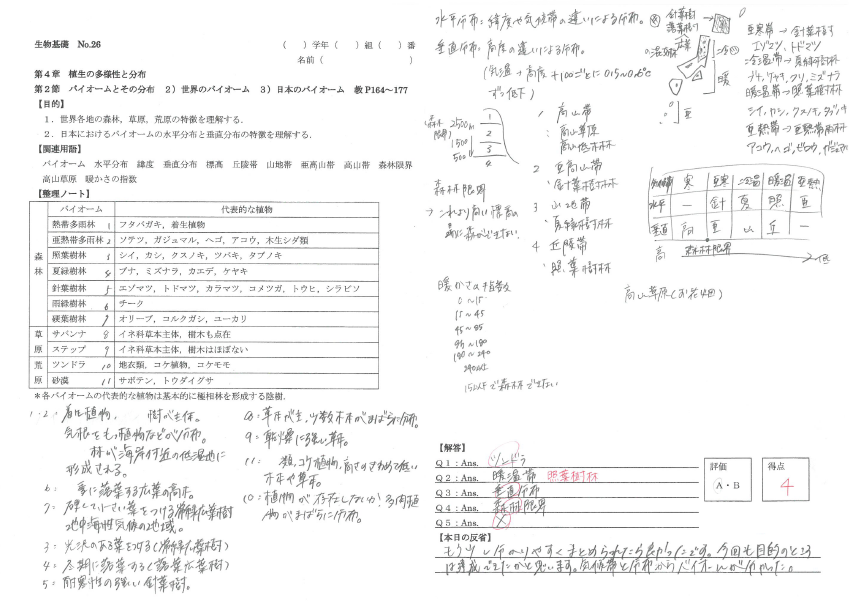 生物基礎　No.26
（　）学年（　）組（　）番
名前（　　　　　　　）
第4章　植生の多様性と分布
第2節　バイオームとその分布　2）世界のバイオーム　3）日本のバイオーム　教P164～177
【目的】
1．世界各地の森林，草原，荒原の特徴を理解する．
2．日本におけるバイオームの水平分布と垂直分布の特徴を理解する．
【関連用語】
バイオーム　水平分布　緯度　垂直分布　標高　丘陵帯　山地帯　亜高山帯　高山帯　森林限界
高山草原　暖かさの指数
【整理ノート】
バイオーム　代表的な植物
森林
熱帯多雨林 1　フタバガキ，着生植物
亜熱帯多雨林 2　ソテツ，ガジュマル，ヘゴ，アコウ，木生シダ類
照葉樹林 3　シイ，カシ，クスノキ，ツバキ，タブノキ
夏緑樹林 4　ブナ，ミズナラ，カエデ，ケヤキ
針葉樹林 5　エゾマツ，トドマツ，カラマツ，コメツガ，トウヒ，シラビソ
雨緑樹林 6　チーク
硬葉樹林 7　オリーブ，コルクガシ，ユーカリ
草原
サバンナ 8　イネ科草本主体，樹木も点在
ステップ 9　イネ科草本主体，樹木はほぼない
荒原
ツンドラ 10　地衣類，コケ植物，コケモモ
砂漠 11　サボテン，トウダイグサ
＊各バイオームの代表的な植物は基本的に極相林を形成する陰樹．
1・2：着生植物、　樹が主体。
気根をもつ植物などが分布。
林が海岸付近の低湿地に
形成される。
6：　夏に落葉する広葉の高木。
7：硬くて小さい葉をつける常緑広葉樹
地中海性気候の地域。
3：光沢のある葉をつける（常緑広葉樹）
4：冬期に落葉する（落葉広葉樹）
5：耐寒性の強い針葉樹。
8：草本が主、少数木本がまばらに分布。
9：乾燥に強い草本。
11：　類、コケ植物、高さのきわめて低い
木本や草本。
10：植物が存在しないか多肉植
物がまばらに分布。
水平分布：緯度や気候帯の違いによる分布。
垂直分布：高度の違いによる分布。
（気温→高度＋100ごとに0.5～0.6℃
ずつ低下）
森林限界
2500m
1500
500
1
2
3
4
1　高山帯
高山草原
高山低木林
2　亜高山帯
針葉樹林
3　山地帯
夏緑樹林
4　丘陵帯
照葉樹林
森林限界
→これより高い標高の
森ができない。
暖かさの指数
0～15
15～45
45～85
85～180
180～240
240以上
15以下で森林できない
亜寒帯→針葉樹林
エゾマツ、トドマツ
冷温帯→夏緑樹林
ブナ、ケヤキ、クリ、ミズナラ
暖温帯→照葉樹林
シイ、カシ、クスノキ、タブノキ
亜熱帯→亜熱帯多雨林
アコウ、ヘゴ、
暖
亜
気候帯　寒　亜寒　冷温　暖温　亜熱
水平　－　針　夏　照　亜
垂直　高　亜　山　丘　－
高　森林限界　→低
高山草原（お花畑）
【解答】
Q1：Ans.　ツンドラ
Q2：Ans.　暖温帯　照葉樹林
Q3：Ans.　垂直分布
Q4：Ans.　森林限界
Q5：Ans.　×
評価
A・B
得点
4
【本日の反省】
もう少し分かりやすくまとめられたら良かったです。今回も目的のところ
は達成できたかと思います。気候帯と分布からバイオームが分かった。